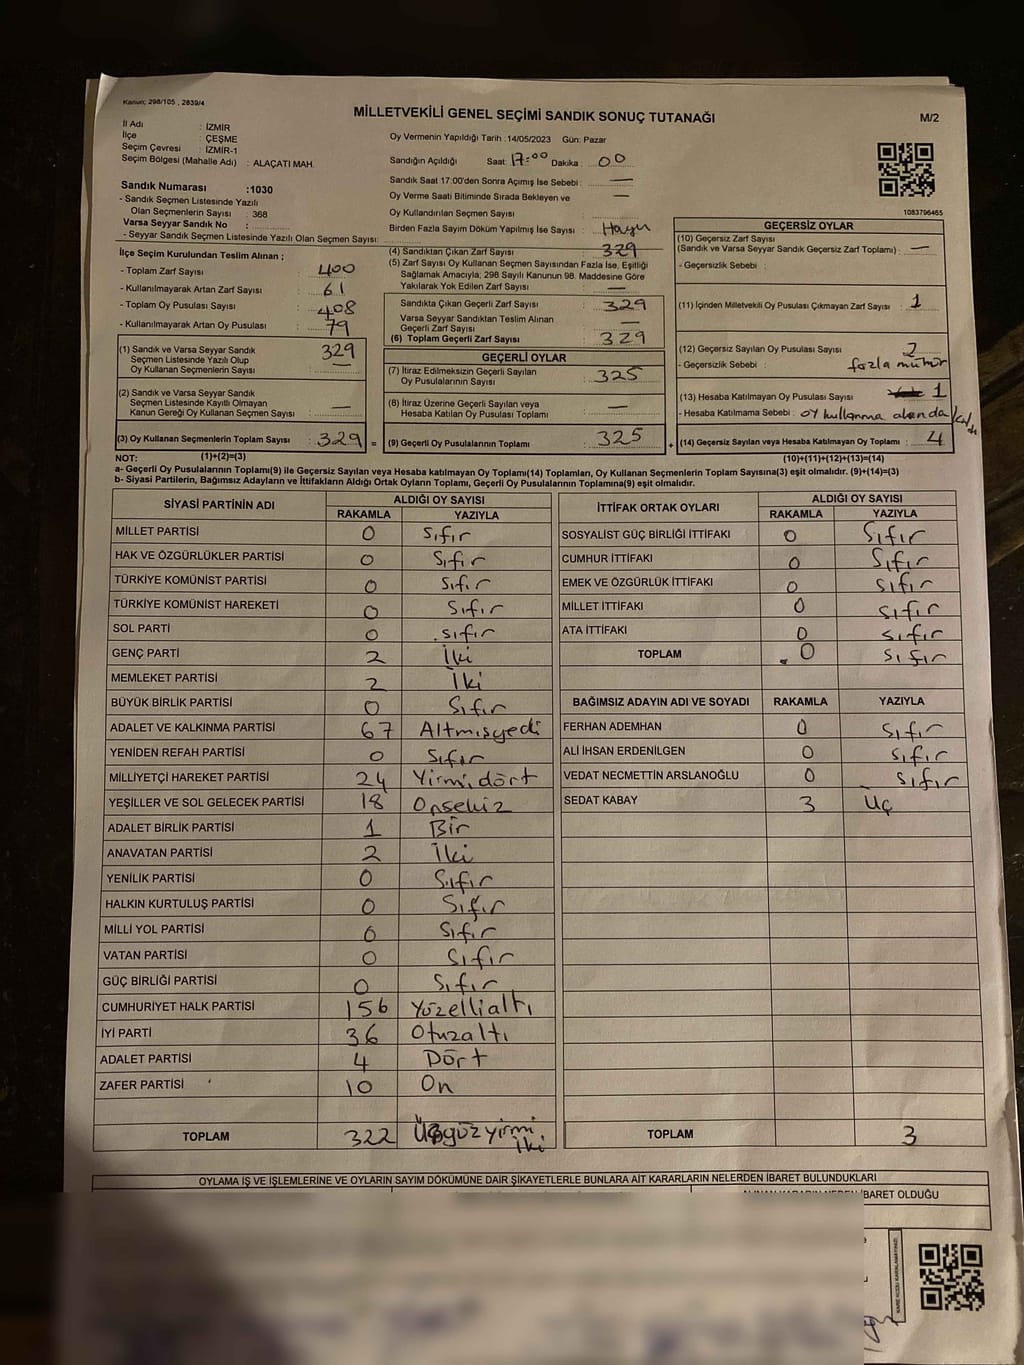 Kanun; 298/105 , 2839/4
MİLLETVEKİLİ GENEL SEÇİMİ SANDIK SONUÇ TUTANAĞI
M/2
İl Adı : İZMİR
İlçe : ÇEŞME
Seçim Çevresi : İZMİR-1
Seçim Bölgesi (Mahalle Adı) : ALAÇATI MAH.
Oy Vermenin Yapıldığı Tarih : 14/05/2023 Gün: Pazar
Sandığın Açıldığı Saat: 17:00 Dakika : 00
Sandık Saat 17:00'den Sonra Açımış İse Sebebi : —
Oy Verme Saati Bitiminde Sırada Bekleyen ve —
Oy Kullandırılan Seçmen Sayısı
Birden Fazla Sayım Döküm Yapılmış İse Sayısı : Hayır
1083796465
Sandık Numarası :1030
- Sandık Seçmen Listesinde Yazılı
Olan Seçmenlerin Sayısı : 368
Varsa Seyyar Sandık No :
- Seyyar Sandık Seçmen Listesinde Yazılı Olan Seçmen Sayısı:
İlçe Seçim Kurulundan Teslim Alınan ;
- Toplam Zarf Sayısı : 400
- Kullanılmayarak Artan Zarf Sayısı : 61
- Toplam Oy Pusulası Sayısı : 408
- Kullanılmayarak Artan Oy Pusulası : 79
(1) Sandık ve Varsa Seyyar Sandık 329
Seçmen Listesinde Yazılı Olup —
Oy Kullanan Seçmenlerin Sayısı :
(2) Sandık ve Varsa Seyyar Sandık
Seçmen Listesinde Kayıtlı Olmayan —
Kanun Gereği Oy Kullanan Seçmen Sayısı :
(3) Oy Kullanan Seçmenlerin Toplam Sayısı : 329 =
(4) Sandıktan Çıkan Zarf Sayısı : 329
(5) Zarf Sayısı Oy Kullanan Seçmen Sayısından Fazla İse, Eşitliği
Sağlamak Amacıyla; 298 Sayılı Kanunun 98. Maddesine Göre
Yakılarak Yok Edilen Zarf Sayısı : —
Sandıkta Çıkan Geçerli Zarf Sayısı : 329
Varsa Seyyar Sandıktan Teslim Alınan
Geçerli Zarf Sayısı : —
(6) Toplam Geçerli Zarf Sayısı : 329
GEÇERLİ OYLAR
(7) İtiraz Edilmeksizin Geçerli Sayılan
Oy Pusulalarının Sayısı : 325
(8) İtiraz Üzerine Geçerli Sayılan veya
Hesaba Katılan Oy Pusulası Toplamı : —
(9) Geçerli Oy Pusulalarının Toplamı : 325 +
GEÇERSİZ OYLAR
(10) Geçersiz Zarf Sayısı
(Sandık ve Varsa Seyyar Sandık Geçersiz Zarf Toplamı) : —
- Geçersizlik Sebebi :
(11) İçinden Milletvekili Oy Pusulası Çıkmayan Zarf Sayısı : 1
(12) Geçersiz Sayılan Oy Pusulası Sayısı : 2
- Geçersizlik Sebebi : fazla mühür
(13) Hesaba Katılmayan Oy Pusulası Sayısı : 1
- Hesaba Katılmama Sebebi : oy kullanma alanda kaldı
(14) Geçersiz Sayılan veya Hesaba Katılmayan Oy Toplamı : 4
NOT: (1)+(2)=(3) (10)+(11)+(12)+(13)=(14)
a- Geçerli Oy Pusulalarının Toplamı(9) ile Geçersiz Sayılan veya Hesaba katılmayan Oy Toplamı(14) Toplamları, Oy Kullanan Seçmenlerin Toplam Sayısına(3) eşit olmalıdır. (9)+(14)=(3)
b- Siyasi Partilerin, Bağımsız Adayların ve İttifakların Aldığı Ortak Oyların Toplamı, Geçerli Oy Pusulalarının Toplamına(9) eşit olmalıdır.
SİYASİ PARTİNİN ADI ALDIĞI OY SAYISI
RAKAMLA YAZIYLA
MİLLET PARTİSİ 0 Sıfır
HAK VE ÖZGÜRLÜKLER PARTİSİ 0 Sıfır
TÜRKİYE KOMÜNİST PARTİSİ 0 Sıfır
TÜRKİYE KOMÜNİST HAREKETİ 0 Sıfır
SOL PARTİ 0 sıfır
GENÇ PARTİ 2 İki
MEMLEKET PARTİSİ 2 İki
BÜYÜK BİRLİK PARTİSİ 0 Sıfır
ADALET VE KALKINMA PARTİSİ 67 Altmışyedi
YENİDEN REFAH PARTİSİ 0 Sıfır
MİLLİYETÇİ HAREKET PARTİSİ 24 Yirmidört
YEŞİLLER VE SOL GELECEK PARTİSİ 18 Onsekiz
ADALET BİRLİK PARTİSİ 1 Bir
ANAVATAN PARTİSİ 2 İki
YENİLİK PARTİSİ 0 Sıfır
HALKIN KURTULUŞ PARTİSİ 0 Sıfır
MİLLİ YOL PARTİSİ 0 Sıfır
VATAN PARTİSİ 0 Sıfır
GÜÇ BİRLİĞİ PARTİSİ 0 Sıfır
CUMHURİYET HALK PARTİSİ 156 Yüzellialtı
İYİ PARTİ 36 Otuzaltı
ADALET PARTİSİ 4 Dört
ZAFER PARTİSİ 10 On
TOPLAM 322 Üçyüzyirmi
iki
İTTİFAK ORTAK OYLARI ALDIĞI OY SAYISI
RAKAMLA YAZIYLA
SOSYALİST GÜÇ BİRLİĞİ İTTİFAKI 0 Sıfır
CUMHUR İTTİFAKI 0 Sıfır
EMEK VE ÖZGÜRLÜK İTTİFAKI 0 sıfır
MİLLET İTTİFAKI 0 sıfır
ATA İTTİFAKI 0 sıfır
TOPLAM 0 sıfır
BAĞIMSIZ ADAYIN ADI VE SOYADI RAKAMLA YAZIYLA
FERHAN ADEMHAN 0 sıfır
ALİ İHSAN ERDENİLGEN 0 sıfır
VEDAT NECMETTİN ARSLANOĞLU 0 sıfır
SEDAT KABAY 3 üç
TOPLAM 3
OYLAMA İŞ VE İŞLEMLERİNE VE OYLARIN SAYIM DÖKÜMÜNE DAİR ŞİKAYETLERLE BUNLARA AİT KARARLARIN NELERDEN İBARET BULUNDUKLARI
İBARET OLDUĞU